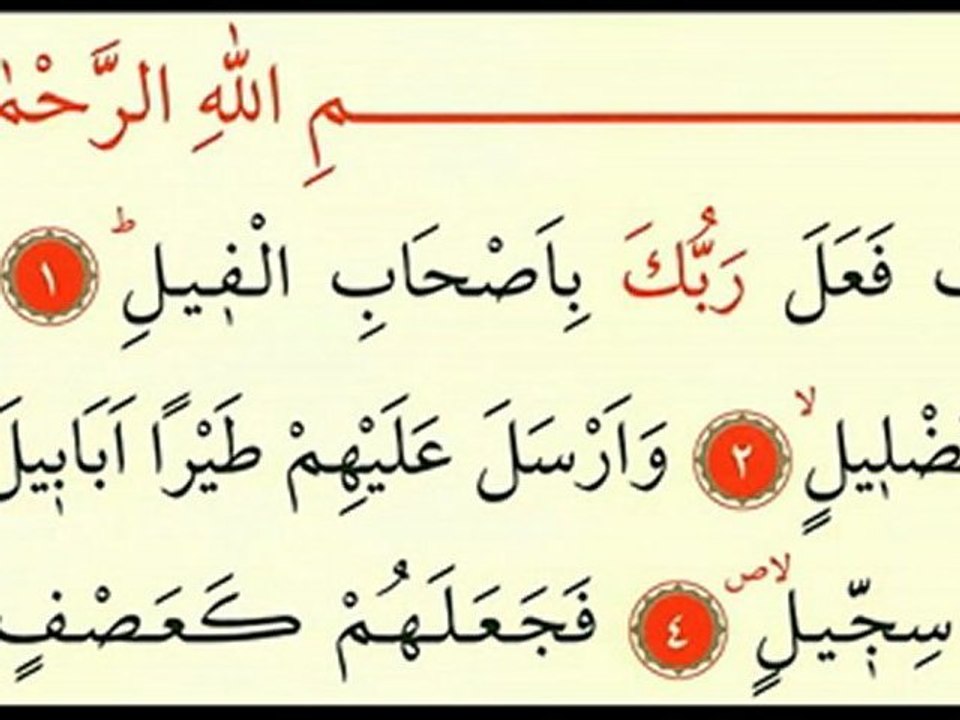 مِ اللّٰهِ الرَّحْمٰ
فَعَلَ رَبُّكَ بِاَصْحَابِ الْفٖيلِؕ ١
ضْلٖيلٍۙ ٢ وَاَرْسَلَ عَلَيْهِمْ طَيْرًا اَبَابٖيلَ
سِجّٖيلٍۙۖ ٤ فَجَعَلَهُمْ كَعَصْفٍ